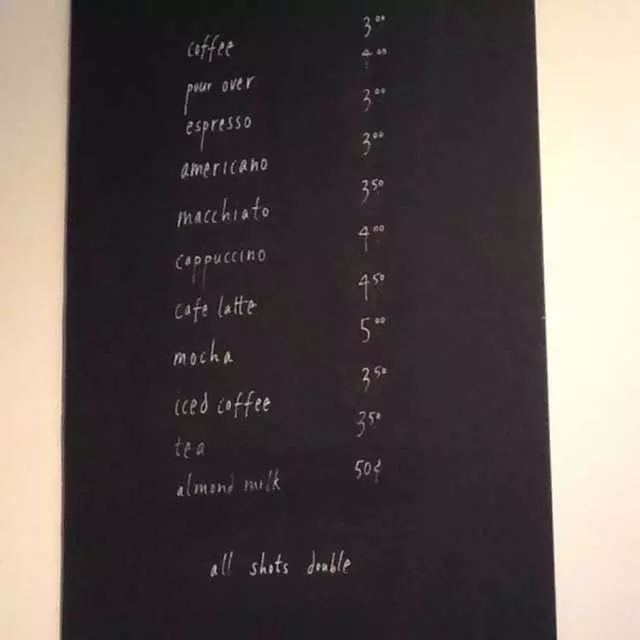 coffee 3.00
pour over 4.00
espresso 3.00
americano 3.00
macchiato 3.50
cappuccino 4.00
cafe latte 4.50
mocha 5.00
iced coffee 3.50
tea 3.50
almond milk 50¢
all shots double